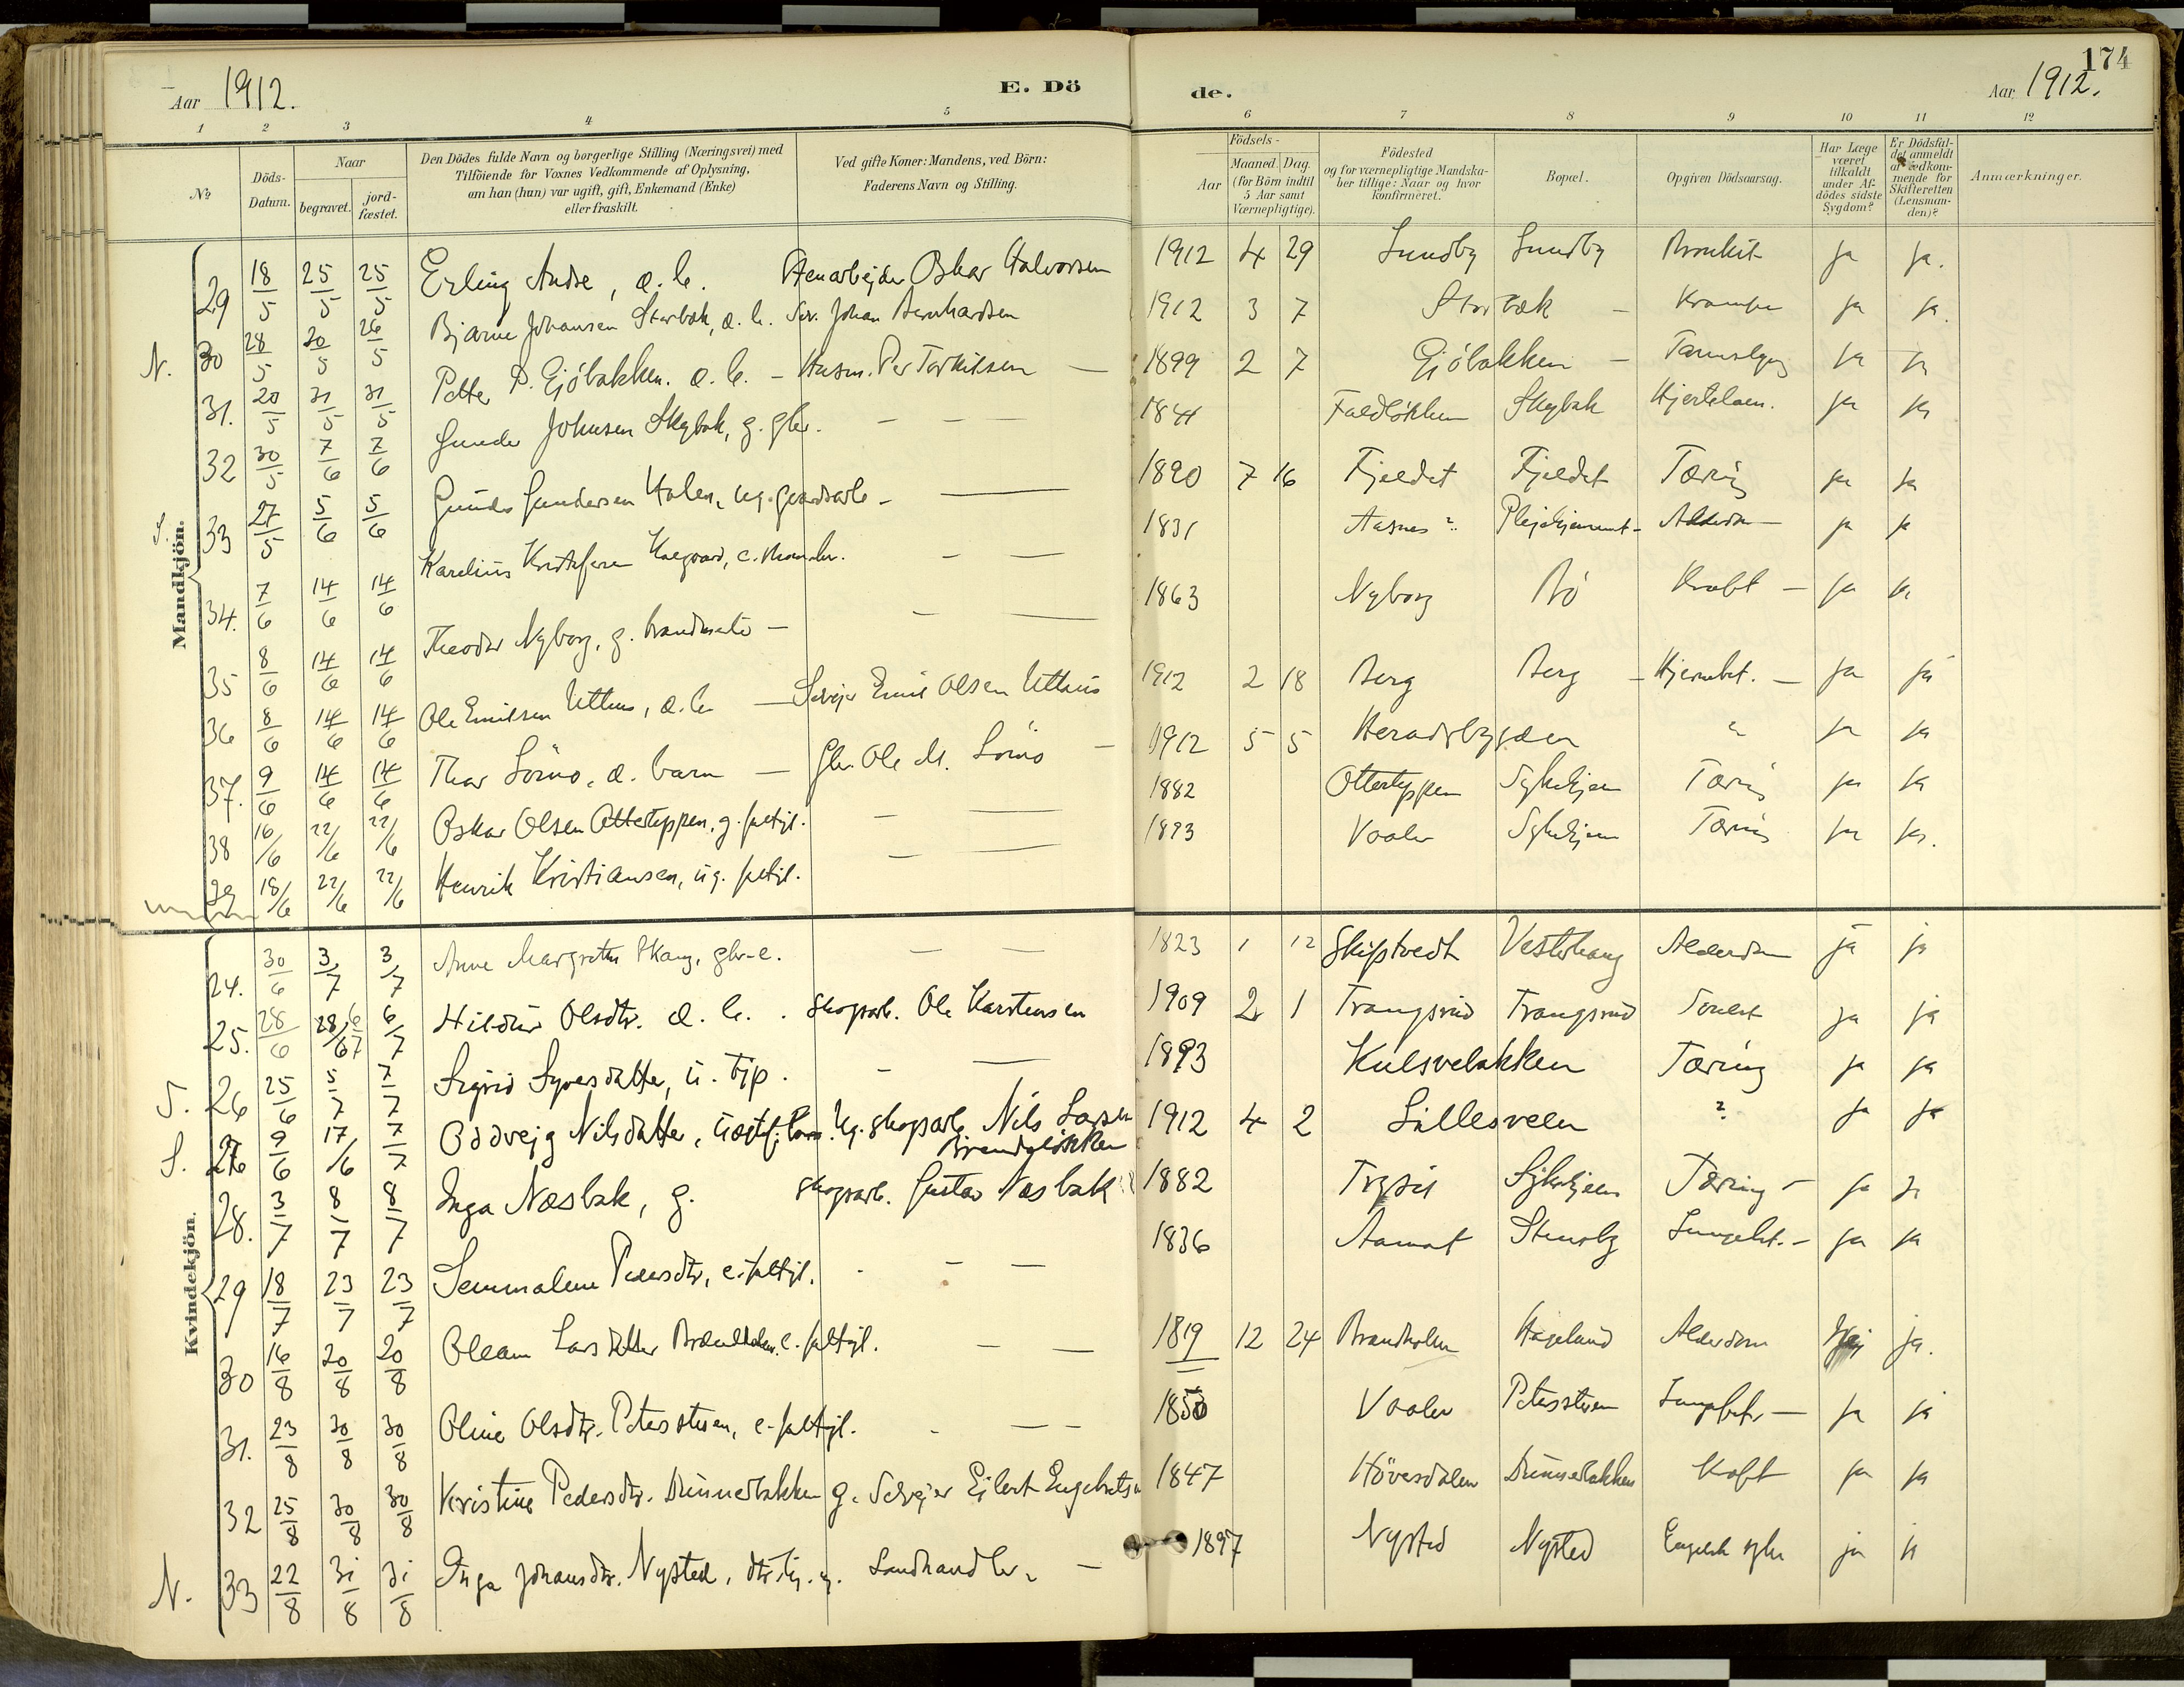 174
Aar 1912. E. Dö de. Aar 1912.
1 2 3 4 5 6 7 8 9 10 11 12
No
Döds-Datum.
Naar
begravet.
jord-fæstet.
Den Dödes fulde Navn og borgerlige Stilling (Næringsvei) med
Tilföiende for Voxnes Vedkommende af Oplysning,
om han (hun) var ugift, gift, Enkemand (Enke)
eller fraskilt.
Ved gifte Koner: Mandens, ved Börn:
Faderens Navn og Stilling.
Födsels-
Aar
Maaned. Dag.
(for Börn indtil
5 Aar samt
Værnepligtige).
Födested
og for værnepligtige Mandska-
ber tillige: Naar og hvor
konfirmeret.
Bopæl.
Opgiven Dödsaarsag.
Har Læge
været
tilkaldt
under Af-
dödes sidste
Sygdom?
Er Dödsfal-
det anmeldt
af vedkom-
mende for
Skifteretten
(Lensman-
den)?
Anmærkninger.
Mandkjön.
29 18/5 25/5 25/5 Erling Andre, æ. b. Stenarbejder Oskar Halvorsen 1912 4 29 Sundby Sundby Bronkit ja ja.
N. 30 28/5 20/5 26/5 Bjarne Johansen Storbæk, æ. b. Johan Bernhardsen 1912 3 7 Storbæk - Krampe ja ja.
31. 20/5 31/5 31/5 Petter P. Gjöbakken. æ. b. - Husm. Per Torkilsen - 1899 2 7 Gjöbakken - ja ja
32 30/5 7/6 7/6 Gunder Johnsen Skybak, g. gbr. - - Skybak ja ja
S. 33 27/5 5/6 5/6 Gunder Gundersen Holen, ug. - 1890 7 16 Fjeldet Fjeldet Tæring ja ja
34. 7/6 14/6 14/6 Karelius Kristofersen - - 1831 Aasnes ? Alderdom - ja ja
35 8/6 14/6 14/6 Theodor Nyborg, g. - - 1863 Nyborg Bö Kræft - ja ja
36 8/6 14/6 14/6 Ole Emilsen Utthus, æ. b. - Selvejer Emil Olsen Utthus 1912 2 18 Berg Berg - - ja ja
37. 9/6 14/6 14/6 Thor Lömo, æ. barn - Gbr. Ole M. Lömo - 1912 5 5 Heradsbygden ? ja ja
38 16/6 22/6 22/6 Oskar Olsen Ottertyppen, g. fattigl. - 1882 Ottertyppen Sykehjem Tæring ja ja
39 18/6 22/6 22/6 Henrik Kristiansen, ug. fattigl. - 1893 Vaaler Sykehjem Tæring ja ja.
Kvindekjön.
24. 30/6 3/7 3/7 Anne Margrethe Skaug, gbr-e. - - 1823 1 12 Skiptvedt Vesterhaug Alderdom ja ja
25. 28/6 28/6 6/7 6/7 Hildur Olsdtr. æ. b. Skogsarb. Ole Karstensen 1909 2 1 Trangsrud Trangsrud ja ja
S. 26 25/6 5/7 7/7 Sigrid Syversdatter, u. tjp. - 1893 Kulsvebakken Tæring ja ja
S. 27 9/6 17/6 7/7 Oddvejg Nilsdatter, uægtef. barn. Ug. skogsarb. Nils Larsen
Brendgløkken 1912 4 2 Lillesveen ? ja ja
28. 3/7 8/7 8/7 Inga Næsbak, g. Skogsarb. Gustav Næsbak 1882 Trysil Sykehjem Tæring - ja ja
29 18/7 23/7 23/7 Pedersdtr, e. fattigl. - - 1836 Aamot - ja ja
30 16/8 20/8 20/8 Oleam Larsdatter e. fattigl. - - 1819 12 24 Brandholen Hageland Alderdom ja.
31. 23/8 30/8 30/8 Oline Olsdtr. Petersstuen, e. fattigl. - - 1850 Vaaler Petersstuen - ja ja
32 25/8 30/8 30/8 Kristine Pedersdtr. Dunnerbakken g. Selvejer Eilert Engebretsen 1847 Hövesdalen Dunnerbakken Kræft ja ja
N. 33 22/8 31/8 31/8 Inga Johansdtr. Nysted, Landhandler - 1897 Nysted Nysted Engelsk syke ja ja